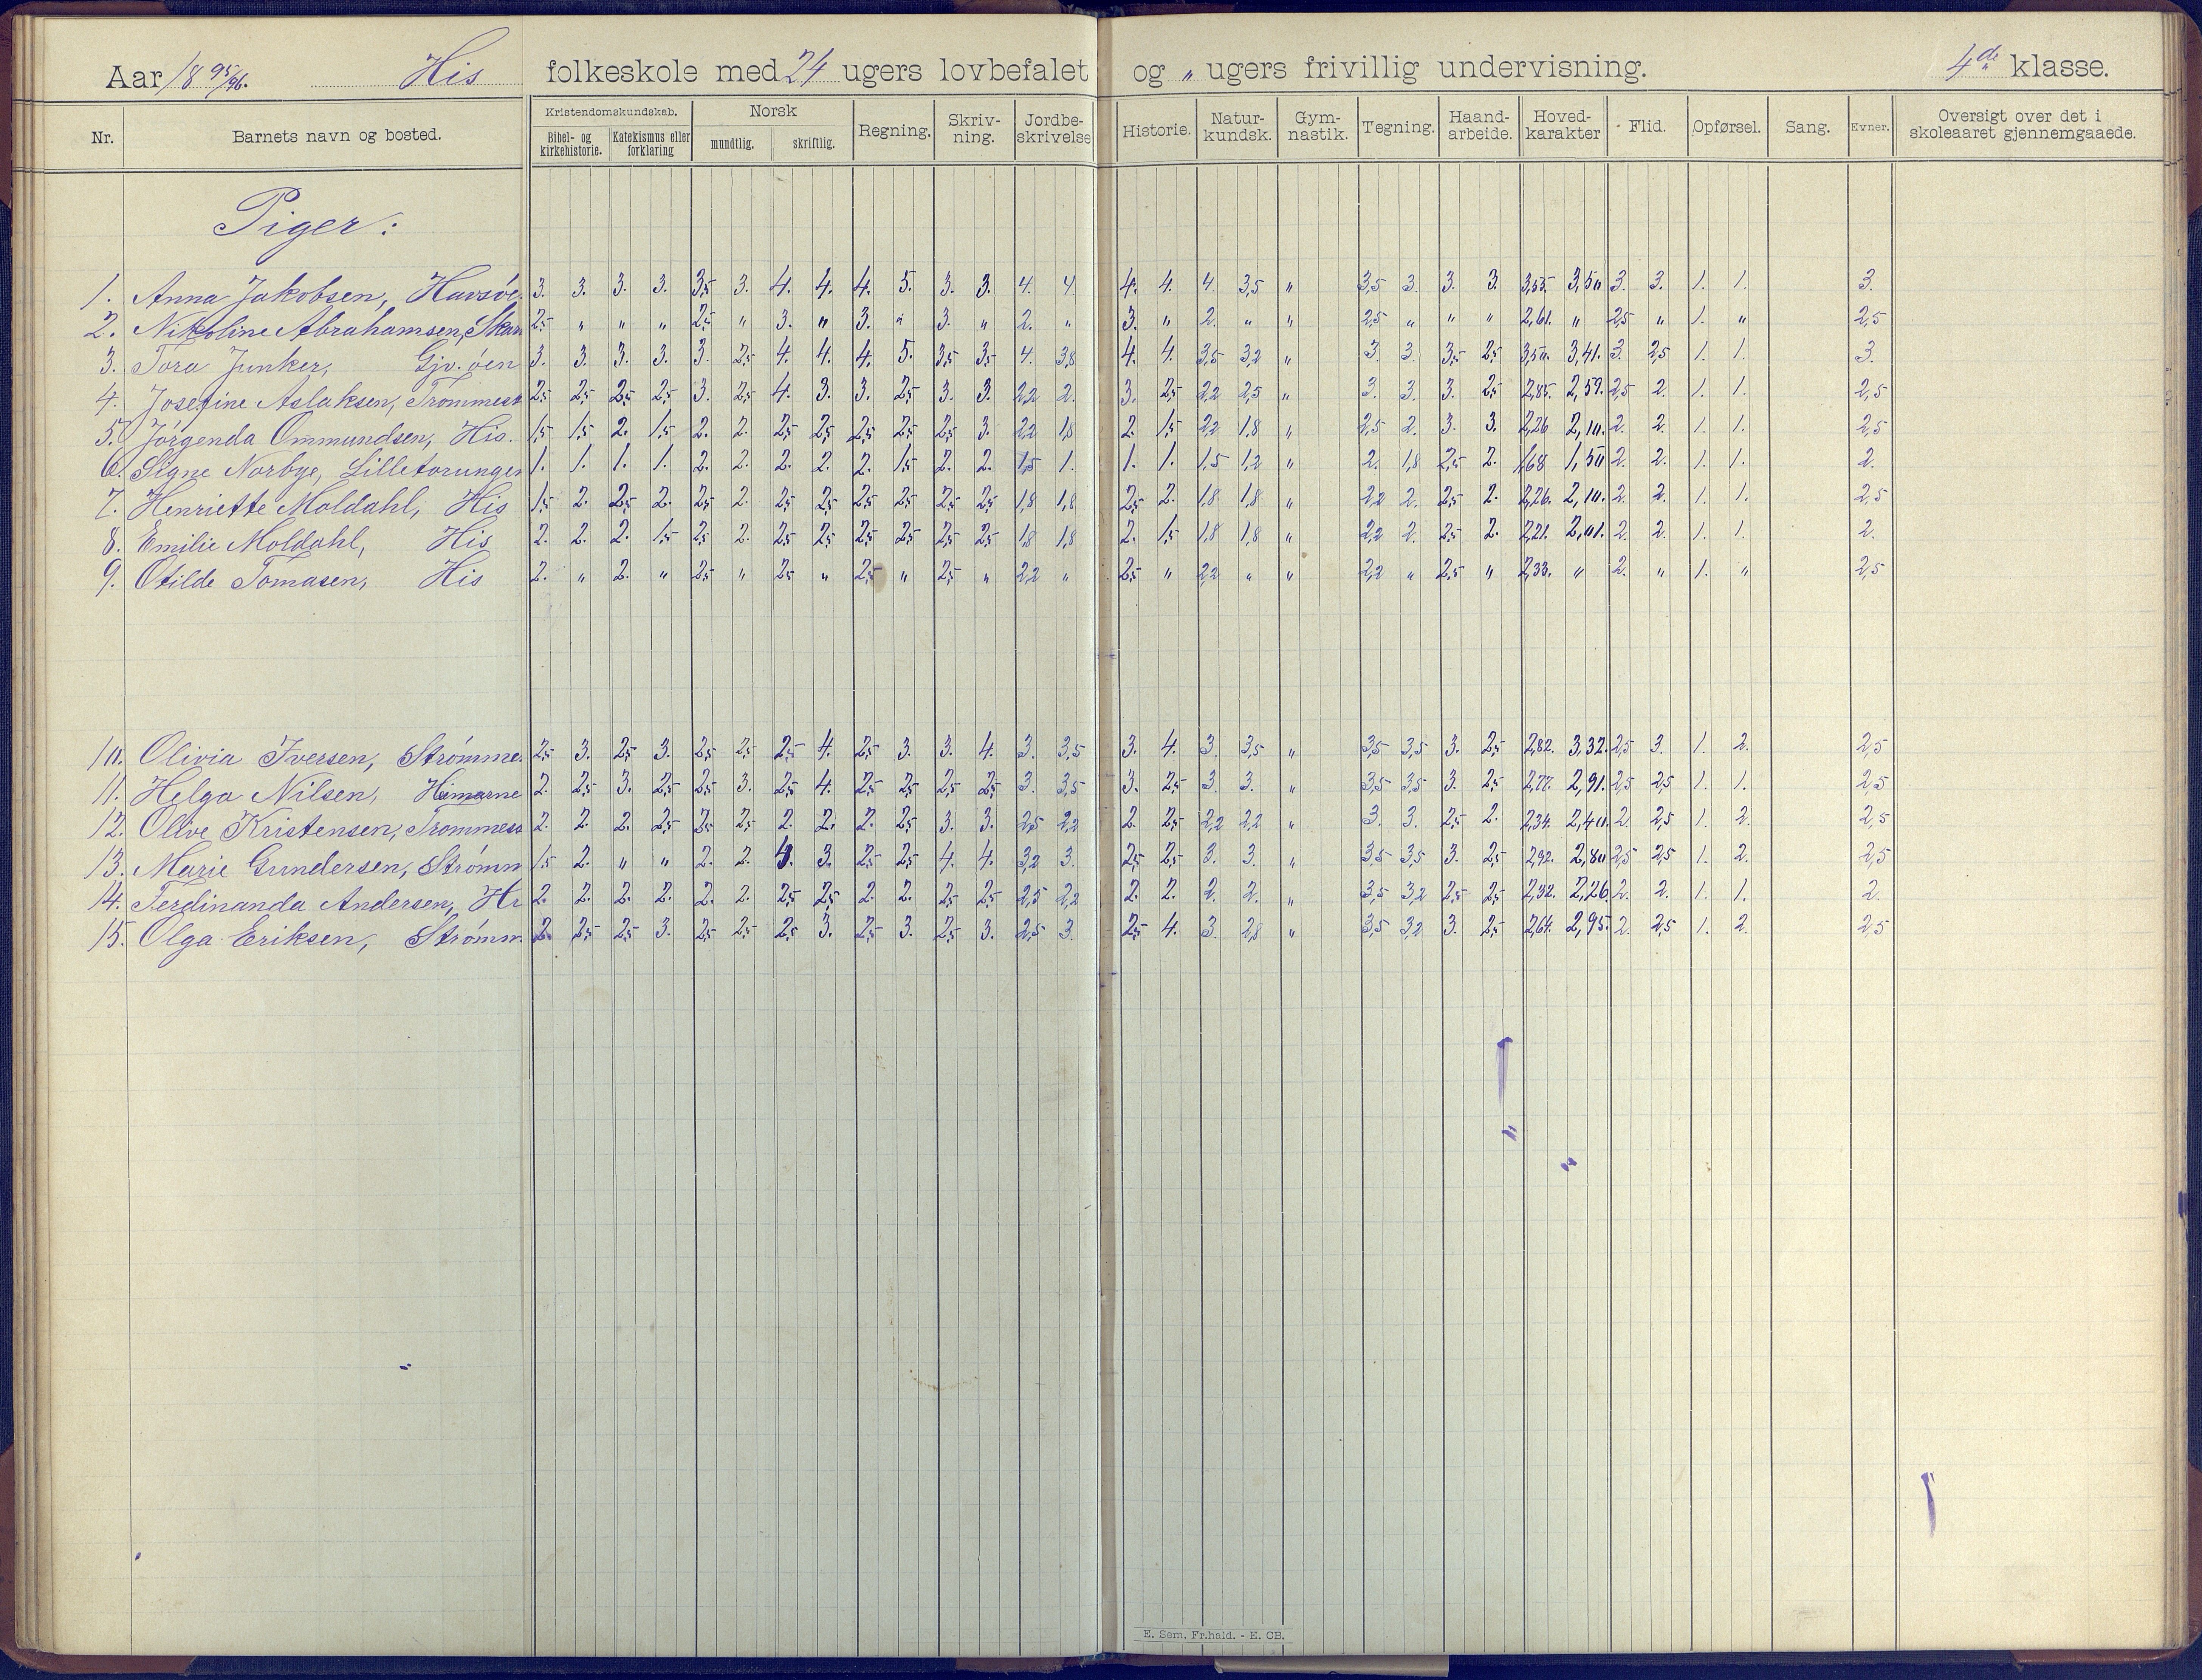 Aar 18 95/96. His folkeskole med 24 ugers lovbefalet og „ ugers frivillig undervisning. 4de klasse.
Nr. Barnets navn og bosted. Kristendomskundskab. Bibel- og kirkehistorie. Katekismus eller forklaring Norsk mundtlig. skriftlig. Regning. Skriv-ning. Jordbe-skrivelse Historie. Natur-kundsk. Gym-nastik. Tegning. Haand-arbeide. Hoved-karakter Flid. Opførsel. Sang. Evner. Oversigt over det i skoleaaret gjennemgaaede.
Piger:
1. Anna Jakobsen, Havsöe 3. 3. 3. 3. 3,5 3. 4. 4. 4. 5. 3. 3. 4. 4 4. 4. 4. 3,5 „ 3,5 3. 3. 3. 3,55 3,50 3. 3. 1. 1. 3.
2. Nikoline Abrahamsen, 2,5 „ „ „ 2,5 „ 3. „ 3. „ 3. „ 2. „ 3. „ 2. „ „ 2,5 „ „ „ 2,61. „ 2,5 „ 1. „ 2,5
3. Tora Junker, Gjv.öen 3. 3. 3. 3. 3. 2,5 4. 4. 4. 5. 3,5 3,5 4. 3,8 4. 4. 3,5 3,2 „ 3. 3. 3,5 2,5 3,50. 3,41. 3. 2,5 1. 1. 3.
4. Josefine Aslaksen, Trommest 2,5 2,5 2,5 2,5 3. 2,5 4. 3. 3. 2,5 3. 3. 2,2 2. 3. 2,5 2,2 2,5 „ 3. 3. 3. 2,5 2,85. 2,59. 2,5 2. 1. 1. 2,5
5. Jörgenda Ommundsen, His. 1,5 1,5 2. 1,5 2. 2. 2,5 2,5 2,5 2,5 2,5 3. 2,2 1,8 2. 1,5 2,2 1,8 „ 2,5 2. 3. 3. 2,26 2,10. 2. 2. 1. 1. 2,5
6. Signe Norbye, Lilletorungen 1. 1. 1. 1. 2. 2. 2. 2. 2. 1,5 2. 2. 1,5 1. 1. 1. 1,5 1,2 „ 2. 1,8 2,5 2. 1,68 1,50 2. 2. 1. 1. 2.
7. Henriette Moldahl, His 1,5 2. 2,5 2. 2,5 2. 2,5 2,5 2,5 2,5 2,5 2,5 1,8 1,8 2,5 2. 1,8 1,8 „ 2,2 2. 2,5 2. 2,26. 2,10. 2. 2. 1. 1. 2,5
8. Emilie Moldahl, His 2. 2. 2. 1,5 2,5 2. 2,5 2,5 2,5 2,5 2,5 2,5 1,8 1,8 2. 1,5 1,8 1,8 „ 2,2 2. 2,5 2. 2,21. 2,01. 2. 2. 1. 1. 2.
9. Otilde Tomasen, His 2. „ 2. „ 2,5 „ 2,5 „ 2,5 „ 2,5 „ 2,2 „ 2,5 „ 2,2 „ „ 2,2 „ 2,5 „ 2,33. „ 2. „ 1. „ 2,5
10. Olivia Iversen, Strömme. 2,5 3. 2,5 3. 2,5 2,5 2,5 4. 2,5 3. 3. 4. 3. 3,5 3. 4. 3. 3,5 „ 3,5 3,5 3. 2,5 2,82. 3,32. 2,5 3. 1. 2. 2,5
11. Helga Nilsen, 2. 2,5 3. 2,5 2,5 3. 2,5 4. 2,5 2,5 2,5 2,5 3. 3,5 3. 2,5 3. 3. „ 3,5 3,5 3. 2,5 2,77. 2,91. 2,5 2,5 1. 1. 2,5
12. Olive Kristensen, Trommess 2. 2. 2. 2,5 2,5 2,5 2. 2. 2. 2,5 3. 3. 2,5 2,2 2. 2,5 2,2 2,2 „ 3. 3. 2,5 2. 2,34. 2,40. 2. 2,5 1. 2. 2,5
13. Marie Gundersen, Strömm 1,5 2. „ „ 2. 2. 4. 3. 2,5 2,5 4. 4. 3,2 3. 2,5 2,5 3. 3. „ 3,5 3,5 3. 2,5 2,92. 2,80 2,5 2,5 1. 2. 2,5
14. Ferdinanda Andersen, 2. 2. 2. 2. 2. 2. 2,5 2,5 2. 2. 2,5 2,5 2,5 2,2 2. 2. 2. 2. „ 3,5 3,2 2,5 2,5 2,32. 2,26 2. 2. 1. 1. 2.
15. Olga Eriksen, Strömm. 2. 2,5 2,5 3. 2,5 2,5 2,5 3. 2,5 3. 2,5 3. 2,5 3. 2,5 4. 3. 2,8 „ 3,5 3,2 3. 2,5 2,64. 2,95. 2. 2,5 1. 2. 2,5
E. Sem, Fr.hald. - E. CB.